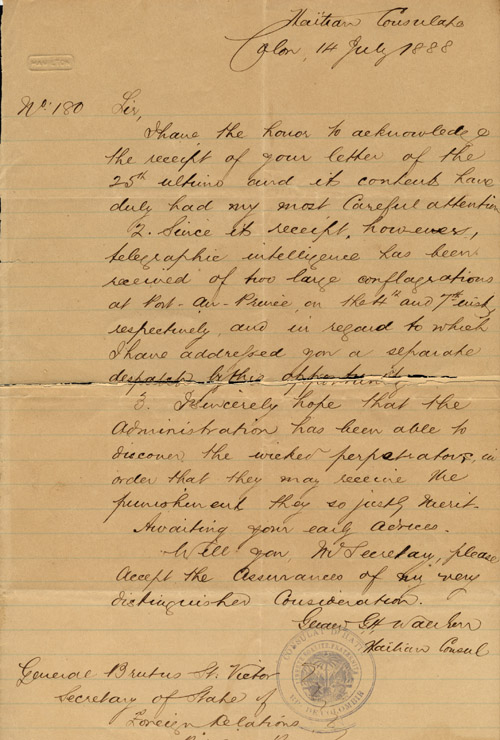 Haïtian Consulate
Colon, 14 July 1888
HAMILTON
No. 180 Sir,
I have the honor to acknowledge
the receipt of your letter of the
25th ultimo and its contents have
duly had my most Careful attention
2. Since its receipt, however,
telegraphic intelligence has been
received of two large conflagrations
at Port-Au-Prince, on the 4th and 7th inst,
respectively, and in regard to which
I have addressed you a separate
despatch by this opportunity
3. I sincerely hope that the
Administration has been able to
discover the wicked perpetrators, in
order that they may receive the
punishment they so justly merit.
Awaiting your early advices.
Will you, Mr Secretary, please
Accept the Assurances of my very
distinguished Consideration.
Haitian Consul
CONSULAT D'HAITI
DE COLOMBIE
General Brutus St. Victor
Secretary of State of
Foreign Relations